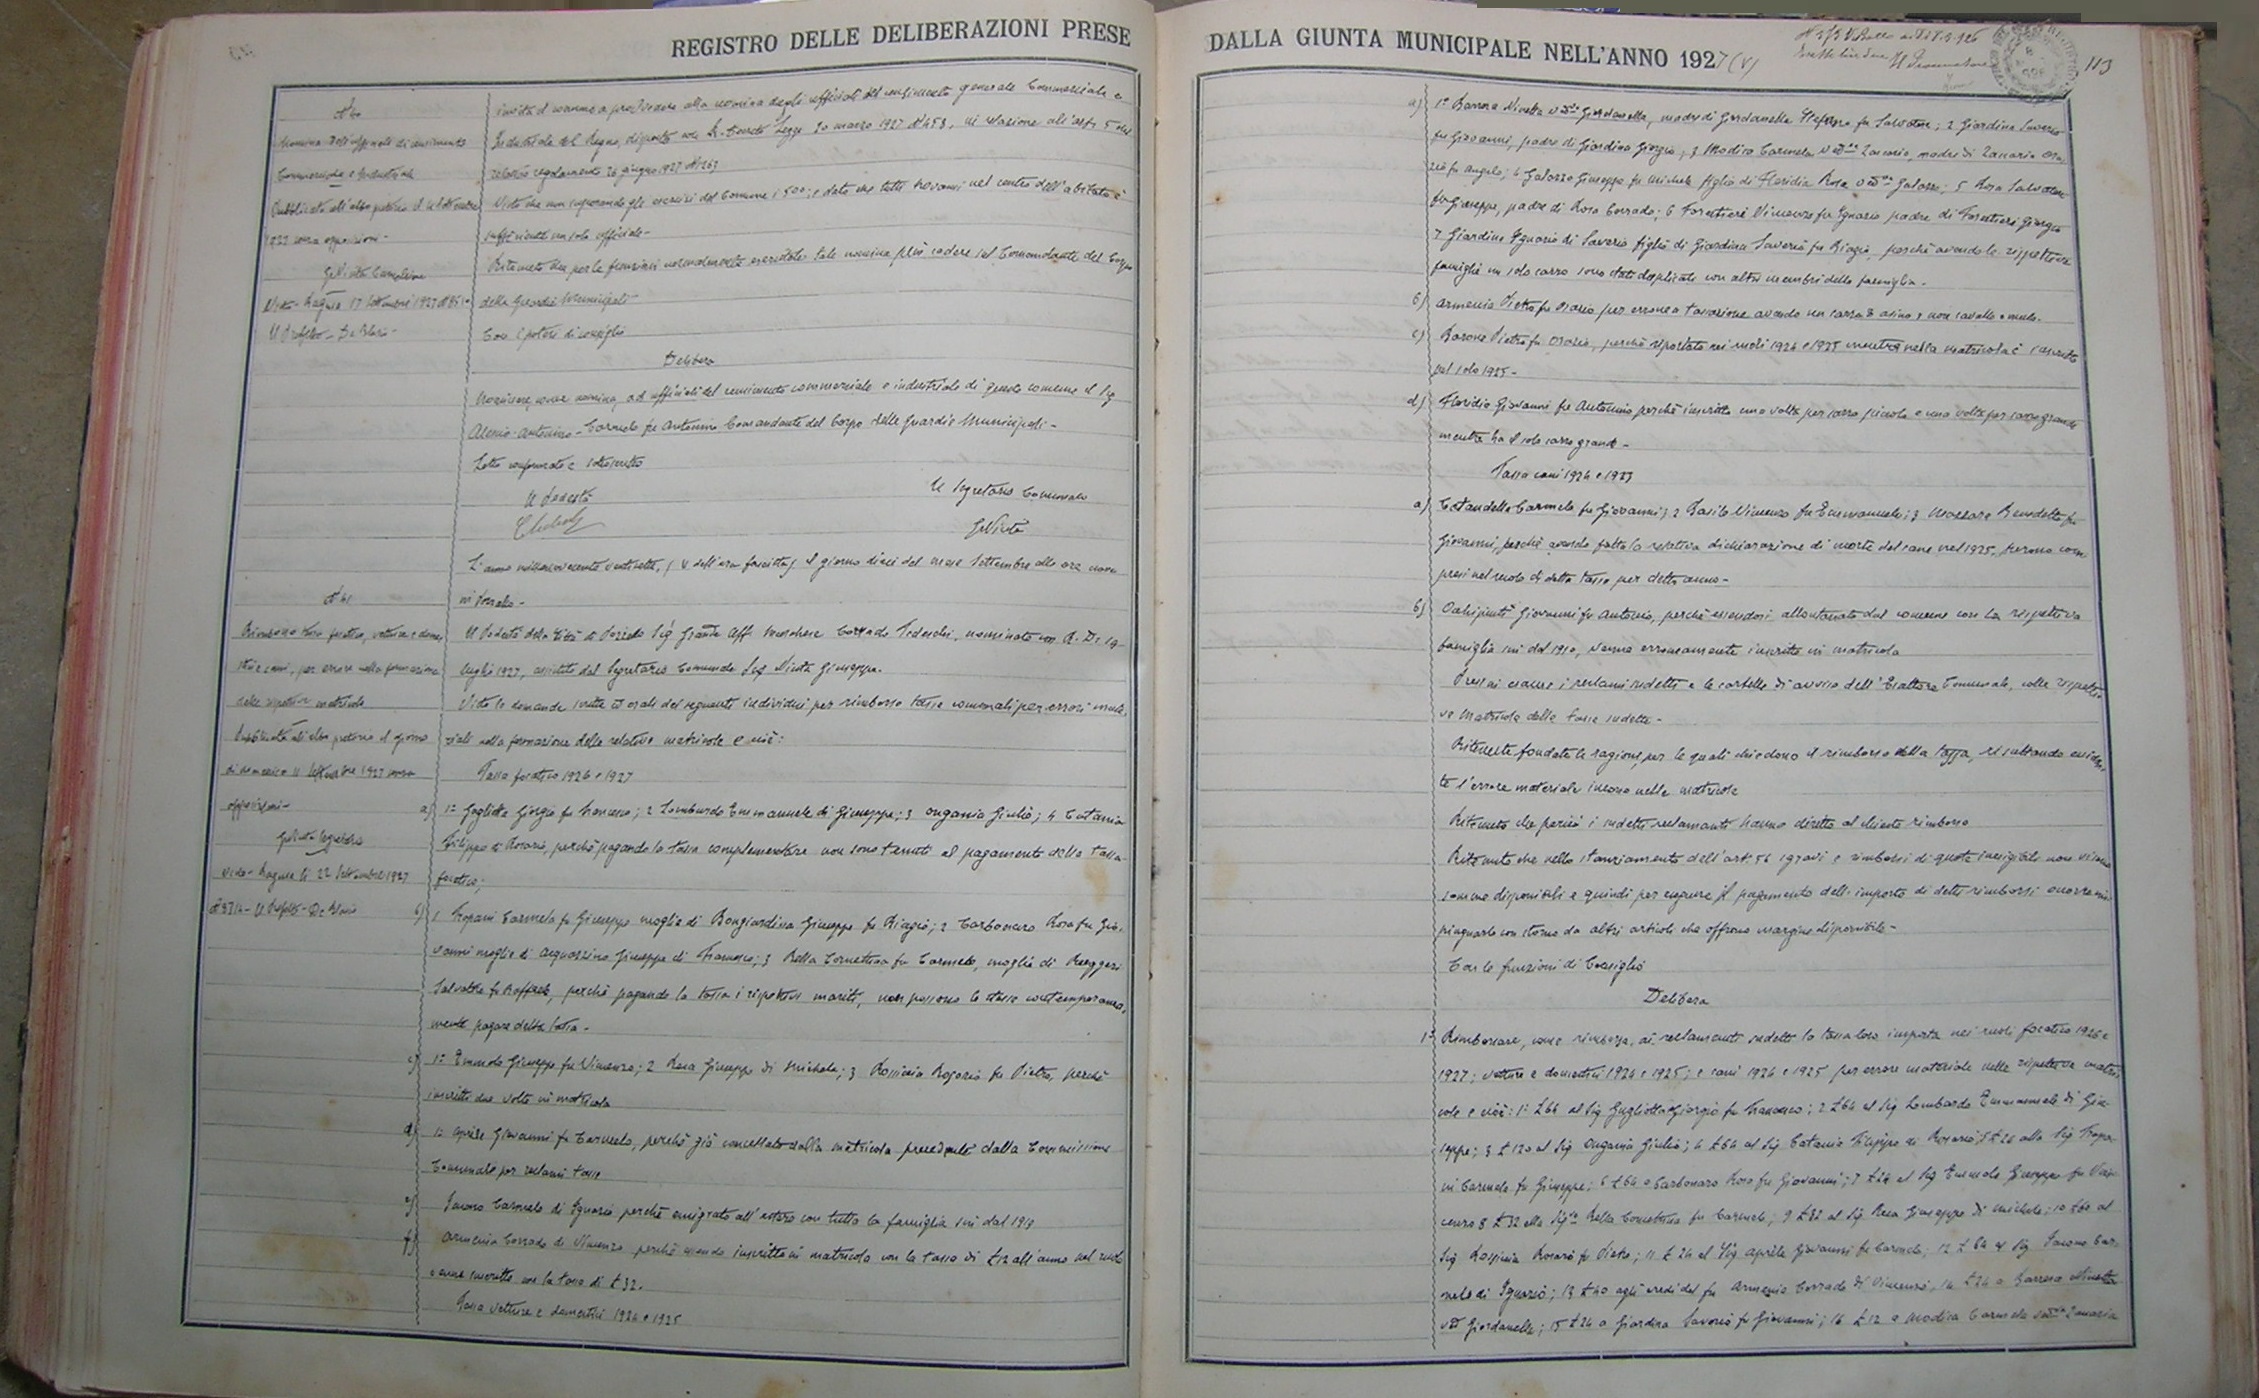 REGISTRO DELLE DELIBERAZIONI PRESE
N 40
Nomina dell'ufficiale di censimento
Commerciale e Industriale
Pubblicata all'albo pretorio il
1927 senza opposizioni -
Visto - Ragusa 17 Settembre 1927
Il Prefetto - De Blasio -
invita il comune a procedere alla nomina degli ufficiali del censimento generale Commerciale e
Industriale del Regno, disposto con R. Decreto Legge 20 marzo 1927 N 458, in relazione all'art. 5 del
relativo regolamento 26 giugno 1927 N 1263
Visto che non superando gli esercizi del Comune i 500; e dato che tutti trovansi nel centro dell'abitato è
sufficiente un solo ufficiale -
Ritenuto che per le funzioni normalmente esercitate tale nomina può cadere sul Comandante del Corpo
delle Guardie Municipali
Con i poteri di consiglio
Delibera
Nominare, come nomina, ad ufficiale del censimento commerciale e industriale di questo comune il Sig
Alessio Antonino - Carmelo fu Antonino Comandante del Corpo delle guardie Municipali -
Letto confermato e sottoscritto
Il Podestà
Il Segretario Comunale
L'anno millenovecento ventisette, (V dell'era fascista) il giorno dieci del mese Settembre alle ore nove
N 41
Rimborso tassa focatico, vetture e dome-
stici e cani, per errore nella formazione
delle rispettive matricole
Pubblicata all'albo pretorio il giorno
di domenica 11 Settembre 1927 senza
opposizioni -
Visto - Ragusa li 22 Settembre 1927
Il Prefetto - De Blasio
Il Podestà della Città di Pozzallo Sig. Grande Uff. Marchese Corrado Tedeschi, nominato con R. D. 19
luglio 1927, assistito dal Segretario Comunale Sig. Giuseppe.
Viste le domande scritte ed orali dei seguenti individui per rimborso tasse comunali per errori mate-
riali nella formazione delle relative matricole e cioè:
Tassa focatico 1926 e 1927
a) 1° Gugliotta Giorgio fu Francesco; 2 Lombardo Emmanuele di Giuseppe; 3 Giulio; 4 Catania
Filippo di Rosario, perchè pagando la tassa complementare non sono tenuti al pagamento della tassa
focatico;
b) 1 Tropani Carmela fu Giuseppe moglie di Bongiardina Giuseppe fu Biagio; 2 Carbonaro Rosa fu Gio-
vanni moglie di Giuseppe di Francesco; 3 Bella Concettina fu Carmelo, moglie di Ruggeri
Salvatore fu Raffaele, perchè pagando la tassa i rispettivi mariti, non possono le stesse contemporanea-
mente pagare detta tassa -
c) 1° Emmolo Giuseppe fu Vincenzo; 2 Rosa Giuseppe di Michele; 3 Rosario fu Pietro, perchè
inscritti due volte in matricola
d) 1° Aprile Giovanni fu Carmelo, perchè già cancellato dalla matricola precedente dalla Commissione
Comunale per reclami tasse
e) Carmelo di Ignazio perchè emigrato all'estero con tutta la famiglia sin dal 1919
f) Armenia Corrado di Vincenzo perchè essendo inscritto in matricola con la tassa di £ 12 all'anno nel ruolo
venne inscritto con la tassa di £ 32.
Tassa vetture e domestici 1924 e 1925
DALLA GIUNTA MUNICIPALE NELL'ANNO 1927 (V)
113
a) 1° Barrera Ninetta ved. Giordanella, madre di Giordanella fu Salvatore; 2 Giardina Saverio
fu Giovanni, padre di Giardina Giorgio; 3 Modica Carmela ved. Zaccaria, madre di Zaccaria Ora-
zio fu Angelo; 4 Galazzo Giuseppe fu Michele figlio di Floridia Rosa ved. Galazzo; 5 Rosa Salvatore
fu Giuseppe, padre di Rosa Corrado; 6 Forestieri Vincenzo fu Ignazio padre di Forestieri Giorgio
7 Giardina Ignazio di Saverio figlio di Giardina Saverio fu Biagio, perchè avendo le rispettive
famiglie un solo carro sono stati duplicati con altri membri della famiglia -
b) Armenia Pietro fu Orazio per erronea tassazione avendo un carro a asino e non cavallo o mulo.
c) Barone Pietro fu Orazio, perchè riportato nei ruoli 1924 e 1925 mentre nella matricola è inscritto
pel solo 1925 -
d) Floridia Giovanni fu Antonino perchè inscritto una volta per carro piccolo e una volta per carro grande
mentre ha il solo carro grande -
Tassa cani 1924 e 1925
a) Carmelo fu Giovanni; 2 Basile Vincenzo fu Emmanuele; 3 Benedetto fu
Giovanni, perchè avendo fatta la relativa dichiarazione di morte del cane nel 1925, furono com-
presi nel ruolo di detta tassa per detto anno -
b) Occhipinti Giovanni fu Antonio, perchè essendosi allontanato dal comune con la rispettiva
famiglia sin dal 1910, venne erroneamente inscritto in matricola
Presi in esame i reclami sudetti e le cartelle di avviso dell'Esattore Comunale, colle rispetti-
ve Matricole delle tasse sudette -
Ritenute fondate le ragioni, per le quali chiedono il rimborso della tassa, risultando eviden-
te l'errore materiale incorso nelle matricole
Ritenuto che perciò i sudetti reclamanti hanno diritto al chiesto rimborso
Ritenuto che nello stanziamento dell'art. 56 sgravi e rimborsi di quote inesigibili non vi sono
somme disponibili e quindi per eseguire il pagamento dell'importo di detti rimborsi occorre im-
pinguarlo con storno da altri articoli che offrono margine disponibile -
Con le funzioni di Consiglio
Delibera
1° Rimborsare, come rimborsa, ai reclamanti sudetti la tassa loro imposta nei ruoli focatico 1926 e
1927; vetture e domestici 1924 e 1925; e cani 1924 e 1925 per errore materiale nelle rispettive matri-
cole e cioè: 1° £ 64 al Sig. Gugliotta Giorgio fu Francesco; 2 £ 64 al Sig. Lombardo Emmanuele di Giu-
seppe; 3 £ 120 al Sig. Giulio; 4 £ 64 al Sig. Catania Filippo di Rosario; 5 £ 24 alla Sig. Tropa-
ni Carmela fu Giuseppe; 6 £ 64 a Carbonaro Rosa fu Giovanni; 7 £ 24 al Sig. Emmolo Giuseppe fu Vin-
cenzo 8 £ 32 alla Sig.ra Bella Concettina fu Carmelo; 9 £ 32 al Sig. Rosa Giuseppe di Michele; 10 £ 60 al
Sig. Rosario fu Pietro; 11 £ 24 al Sig. Aprile Giovanni fu Carmelo; 12 £ 84 al Sig. Car-
melo di Ignazio; 13 £ 40 agli eredi del fu Armenia Corrado di Vincenzo, 14 £ 24 a Barrera Ninetta
ved. Giordanella; 15 £ 24 a Giardina Saverio fu Giovanni; 16 £ 12 a Modica Carmela ved. Zaccaria